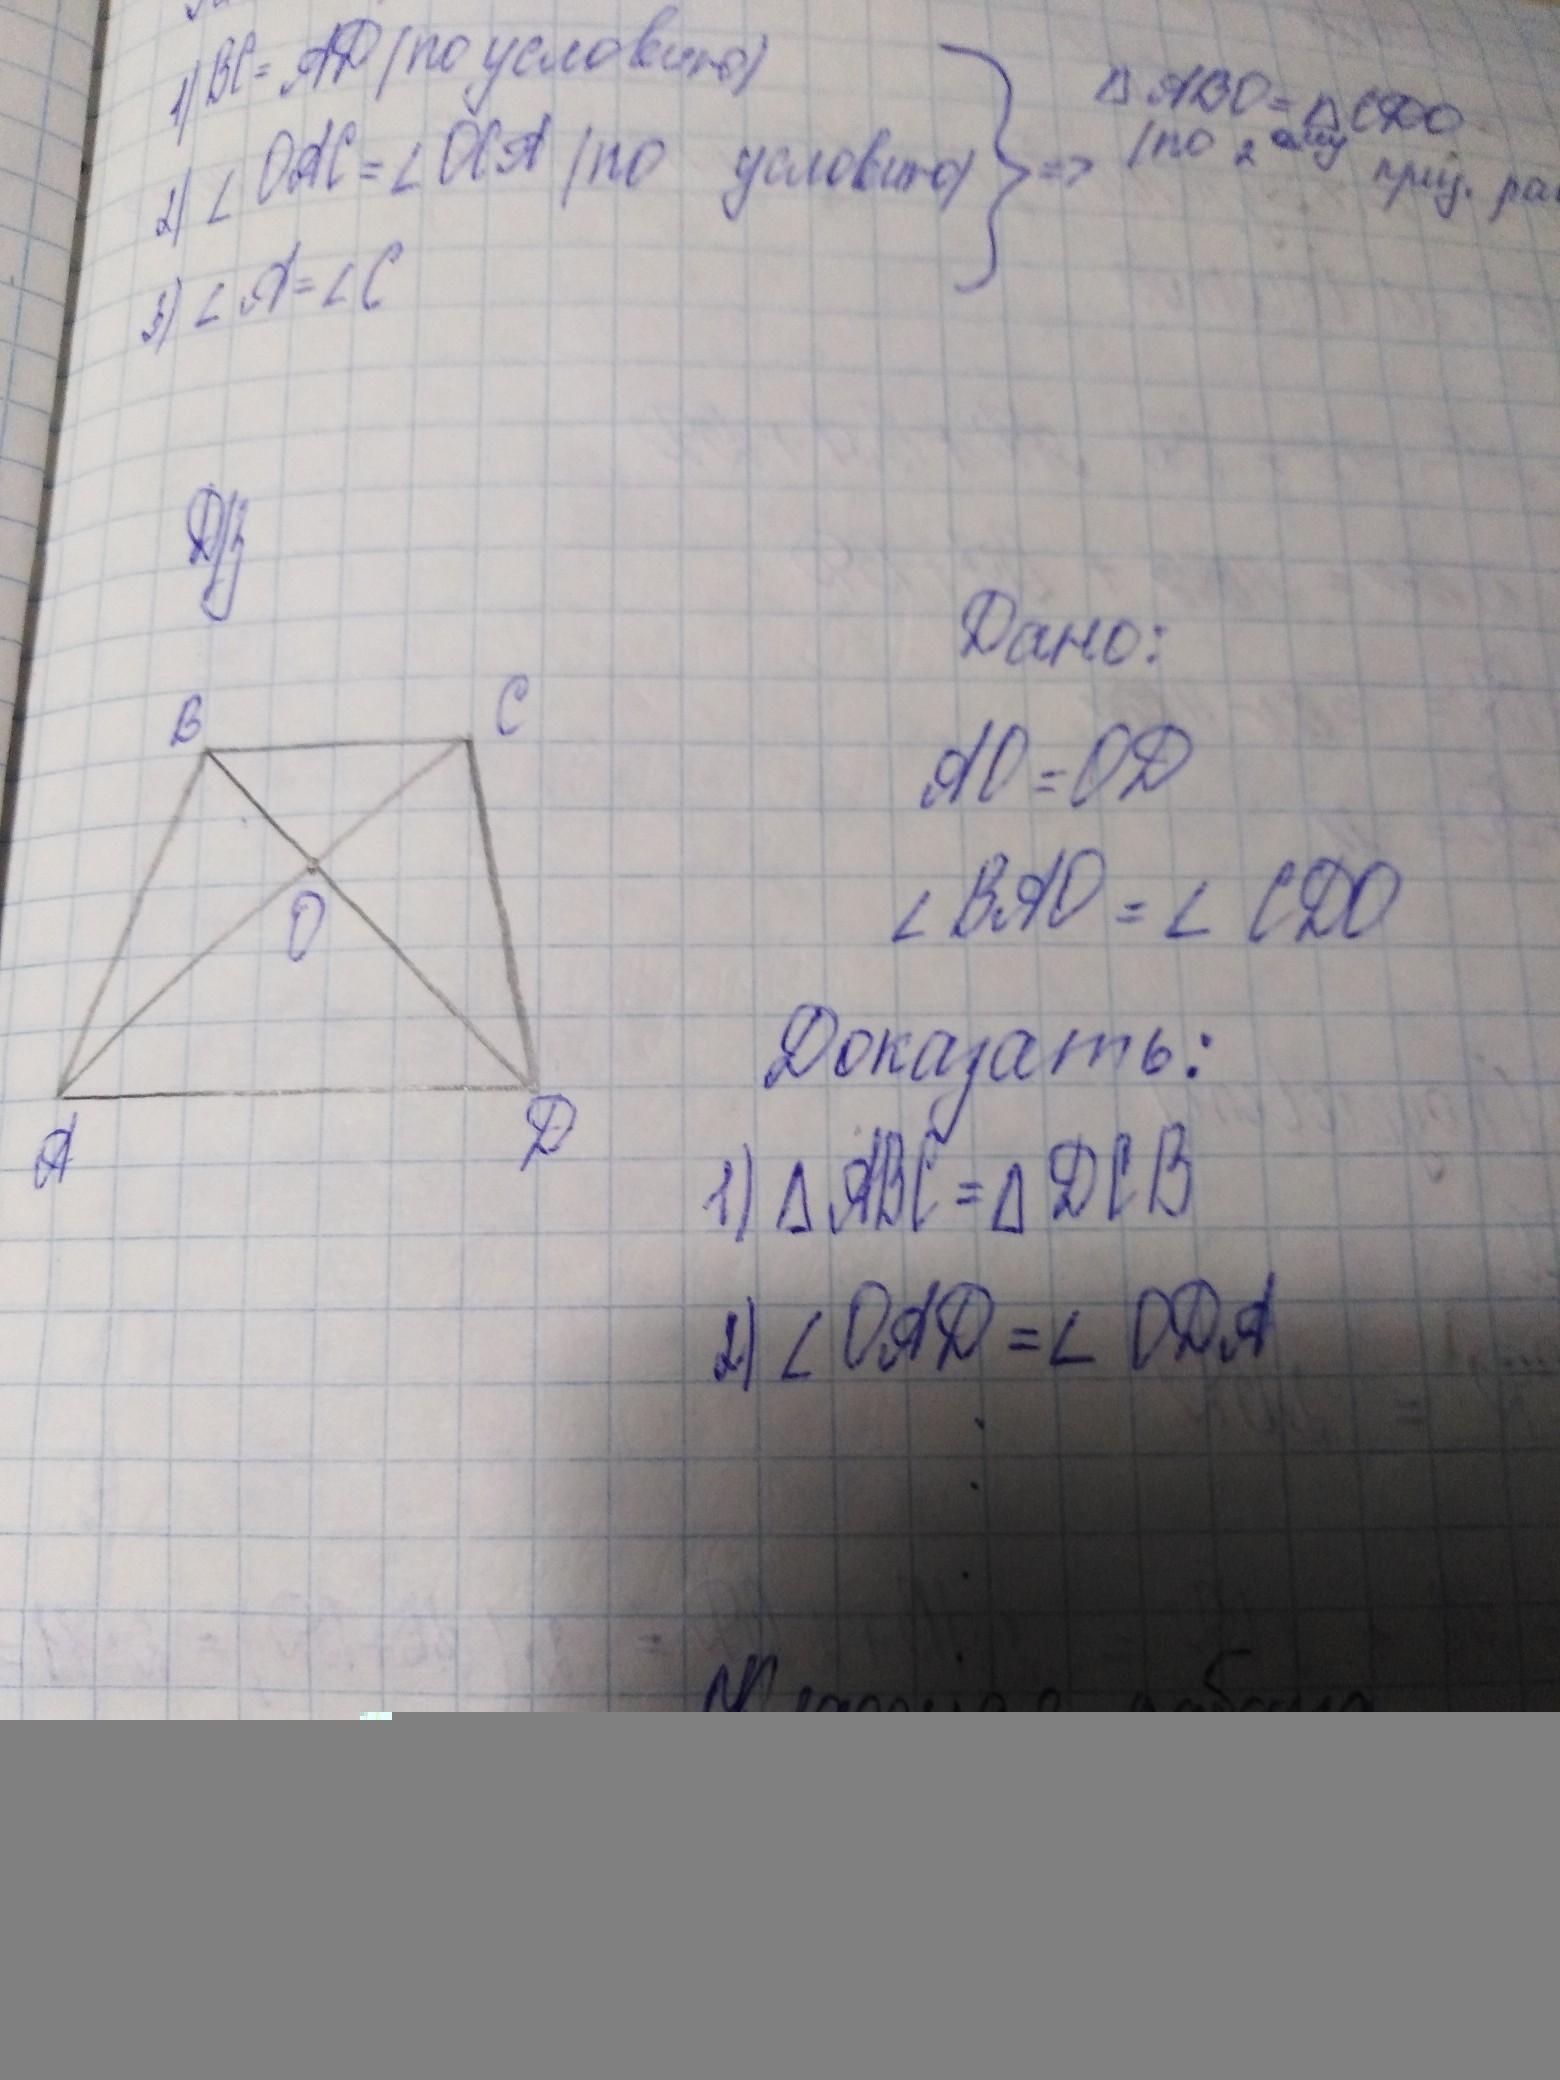 1) BC = AD (по условию)
2) ∠ OAC = ∠ OCA (по условию)
3) ∠ A = ∠ C
=> Δ ABO = Δ CDO
(по 2 ому
Д/з
B C
O
A D
Дано:
AO = OD
∠ BAO = ∠ CDO
Доказать:
1) Δ ABC = Δ DCB
2) ∠ OAD = ∠ ODA